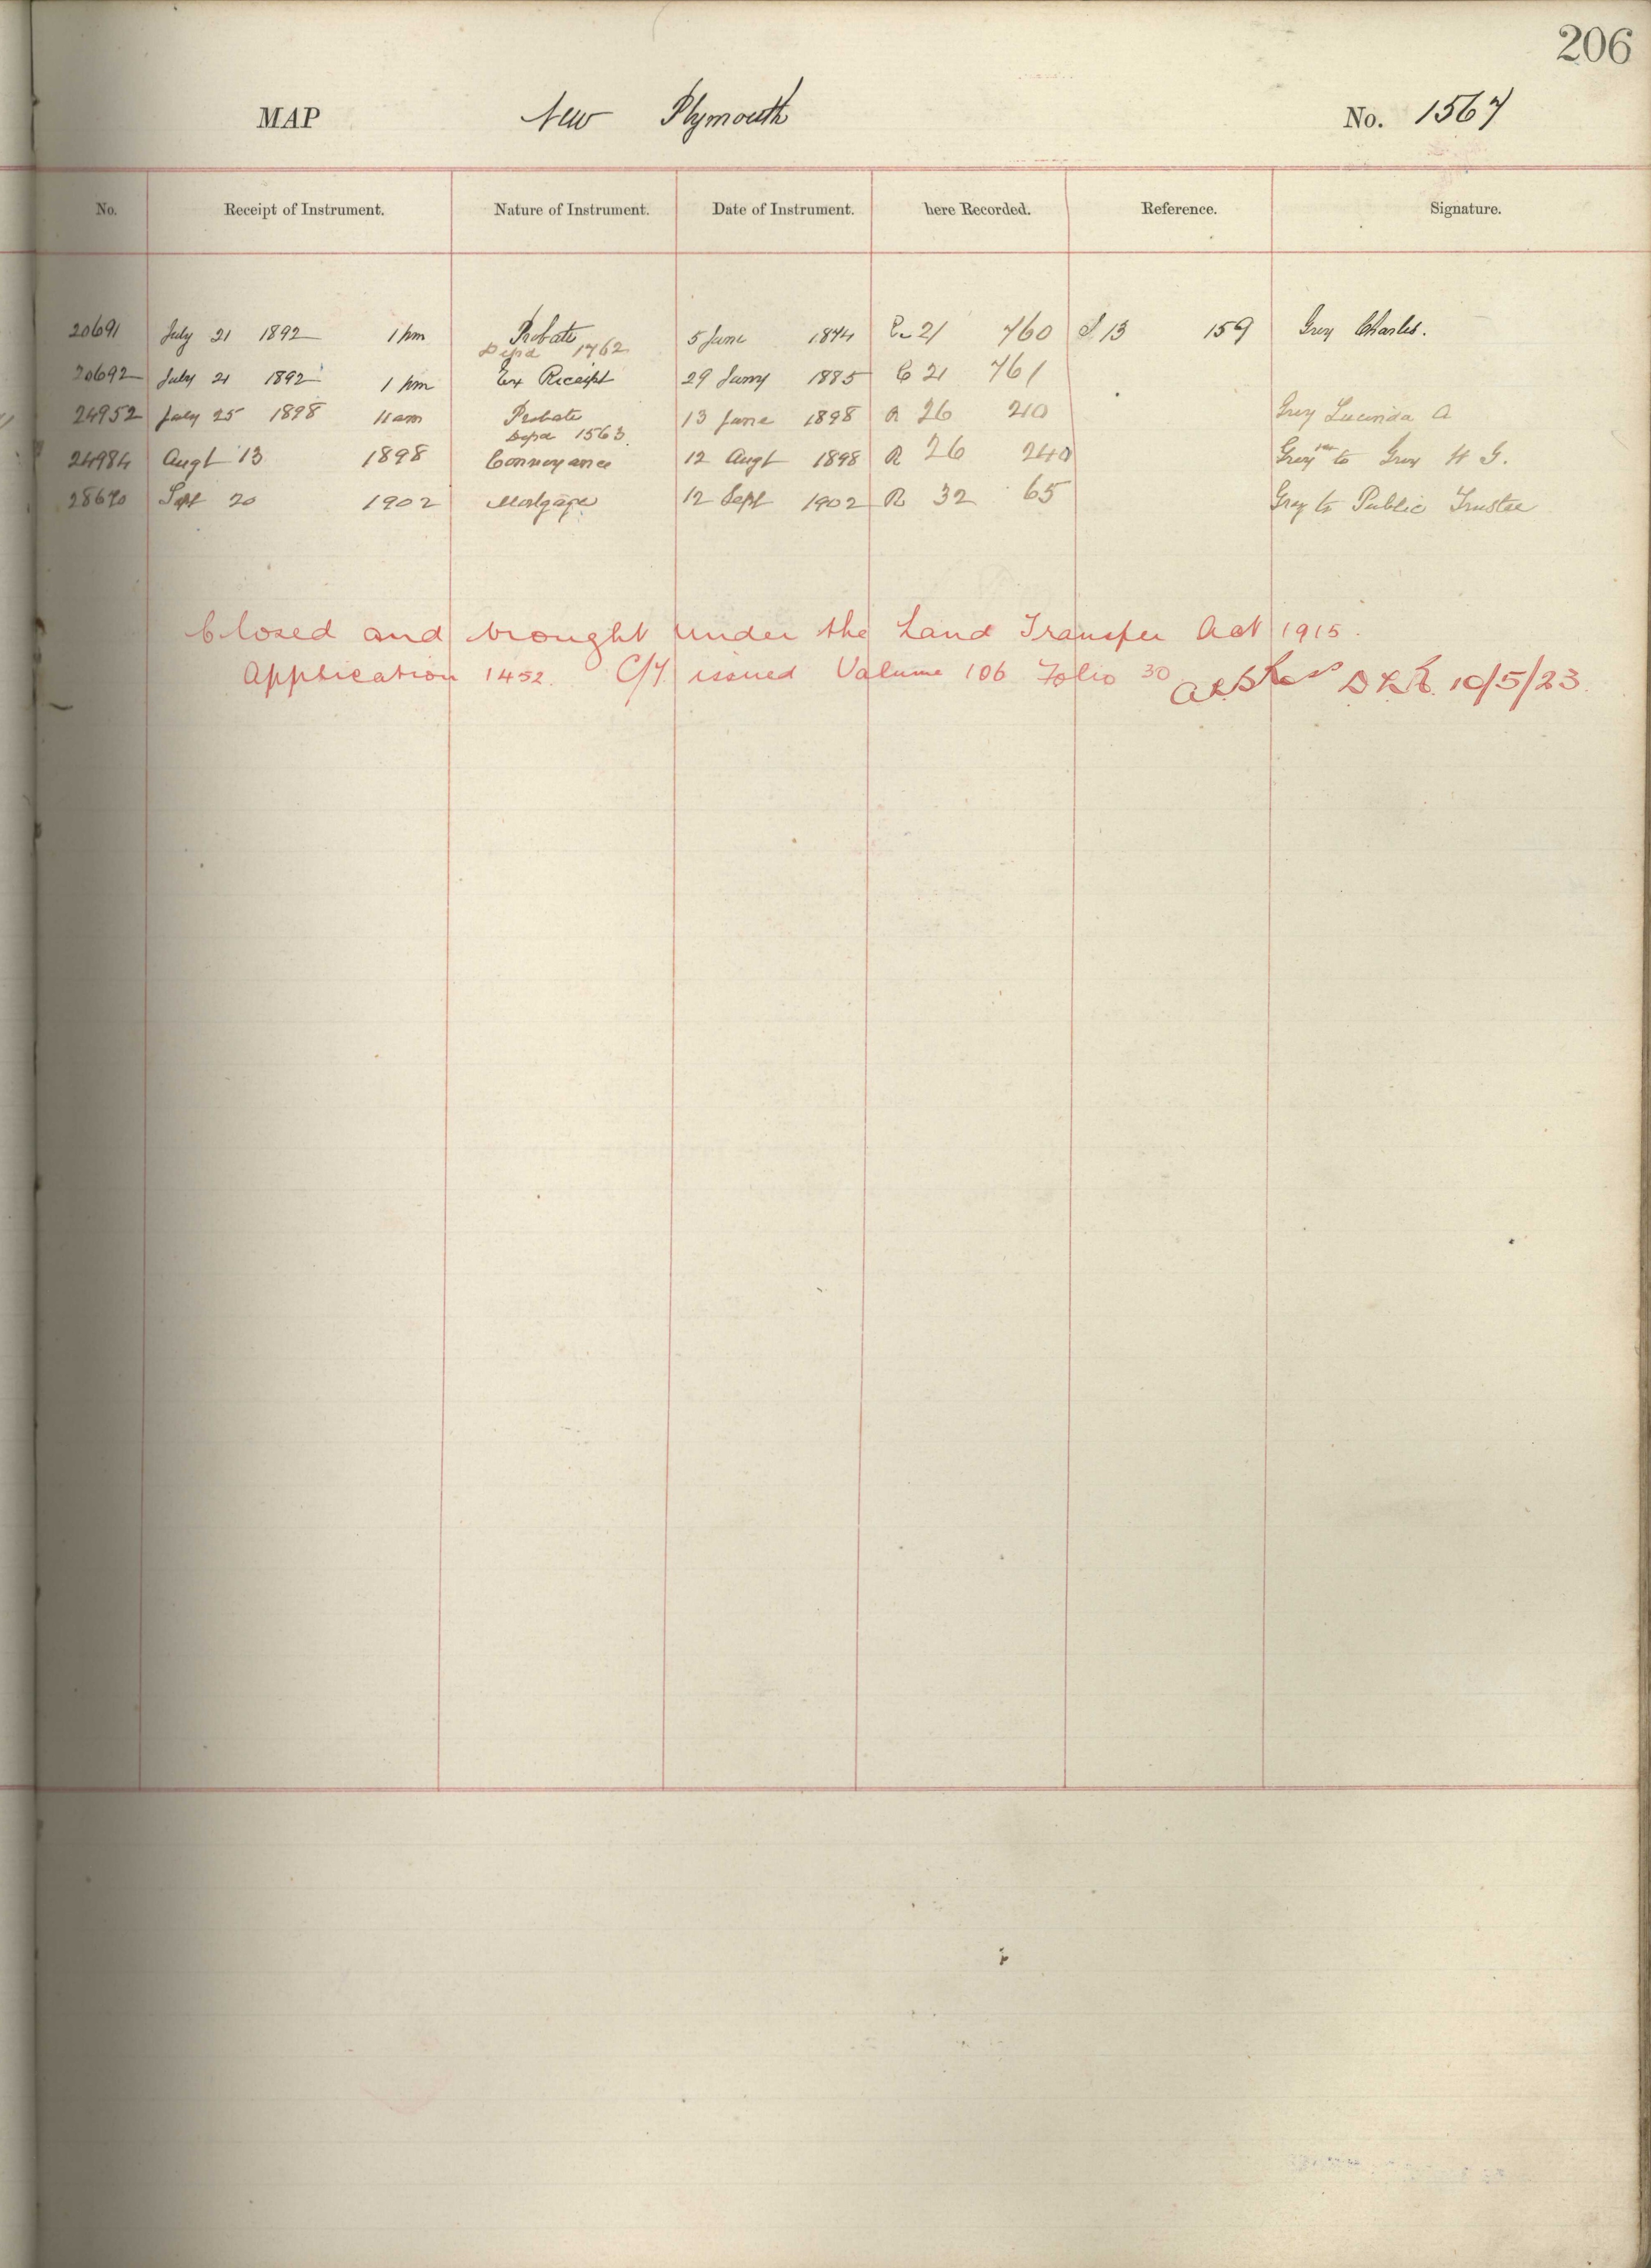 206
MAP New Plymouth No. 1567
No. Receipt of Instrument. Nature of Instrument. Date of Instrument. here Recorded. Reference. Signature.
20691 July 21 1892 1 pm Probate 5 June 1874 C 21 760 I 13 159 Grey Charles.
Depd 1762
20692 July 21 1892 1 pm Ex Receipt 29 Jany 1885 C 21 761
24952 July 25 1898 11 am Probate 13 June 1898 R 26 210 Grey Lucinda A
Depd 1563.
24984 Augt 13 1898 Conveyance 12 Augt 1898 R 26 240 Grey to Grey H G.
28670 Sept 20 1902 Mortgage 12 Sept 1902 R 32 65 Grey to Public Trustee
Closed and brought under the Land Transfer Act 1915.
Application 1452. C/T issued Volume 106 Folio 30 DLR. 10/5/23.